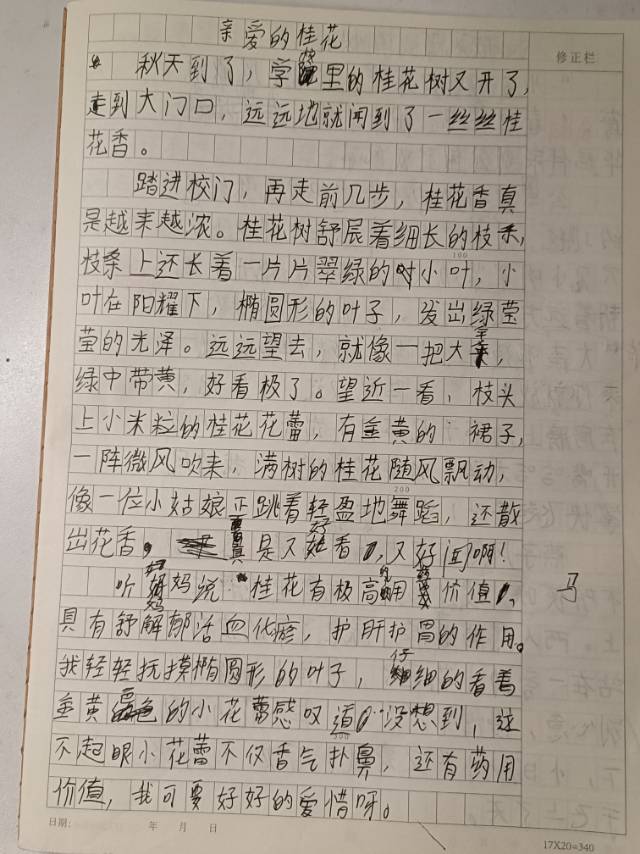 亲爱的桂花
修正栏
秋天到了，学校里的桂花树又开了，
走到大门口，远远地就闻到了一丝丝桂
花香。
踏进校门，再走前几步，桂花香真
是越来越浓。桂花树舒展着细长的枝条，
枝条上还长着一片片翠绿的小叶，小
100
叶在阳耀下，椭圆形的叶子，发出绿莹
莹的光泽。远远望去，就像一把大伞，
绿中带黄，好看极了。望近一看，枝头
上小米粒的桂花花蕾，有金黄的裙子，
一阵微风吹来，满树的桂花随风飘动，
像一位小姑娘正跳着轻盈地舞蹈，还散
200
出花香。真是又好看，又好闻啊！
听妈妈说桂花有极高的用价值。
马
具有舒解郁活血化瘀，护肝护胃的作用。
我轻轻抚摸椭圆形的叶子，仔细的看着
金黄色的小花蕾感叹道没想到，这
300
不起眼小花蕾不仅香气扑鼻，还有药用
价值，我可要好好的爱惜呀。
日期： 年 月 日
17X20=340